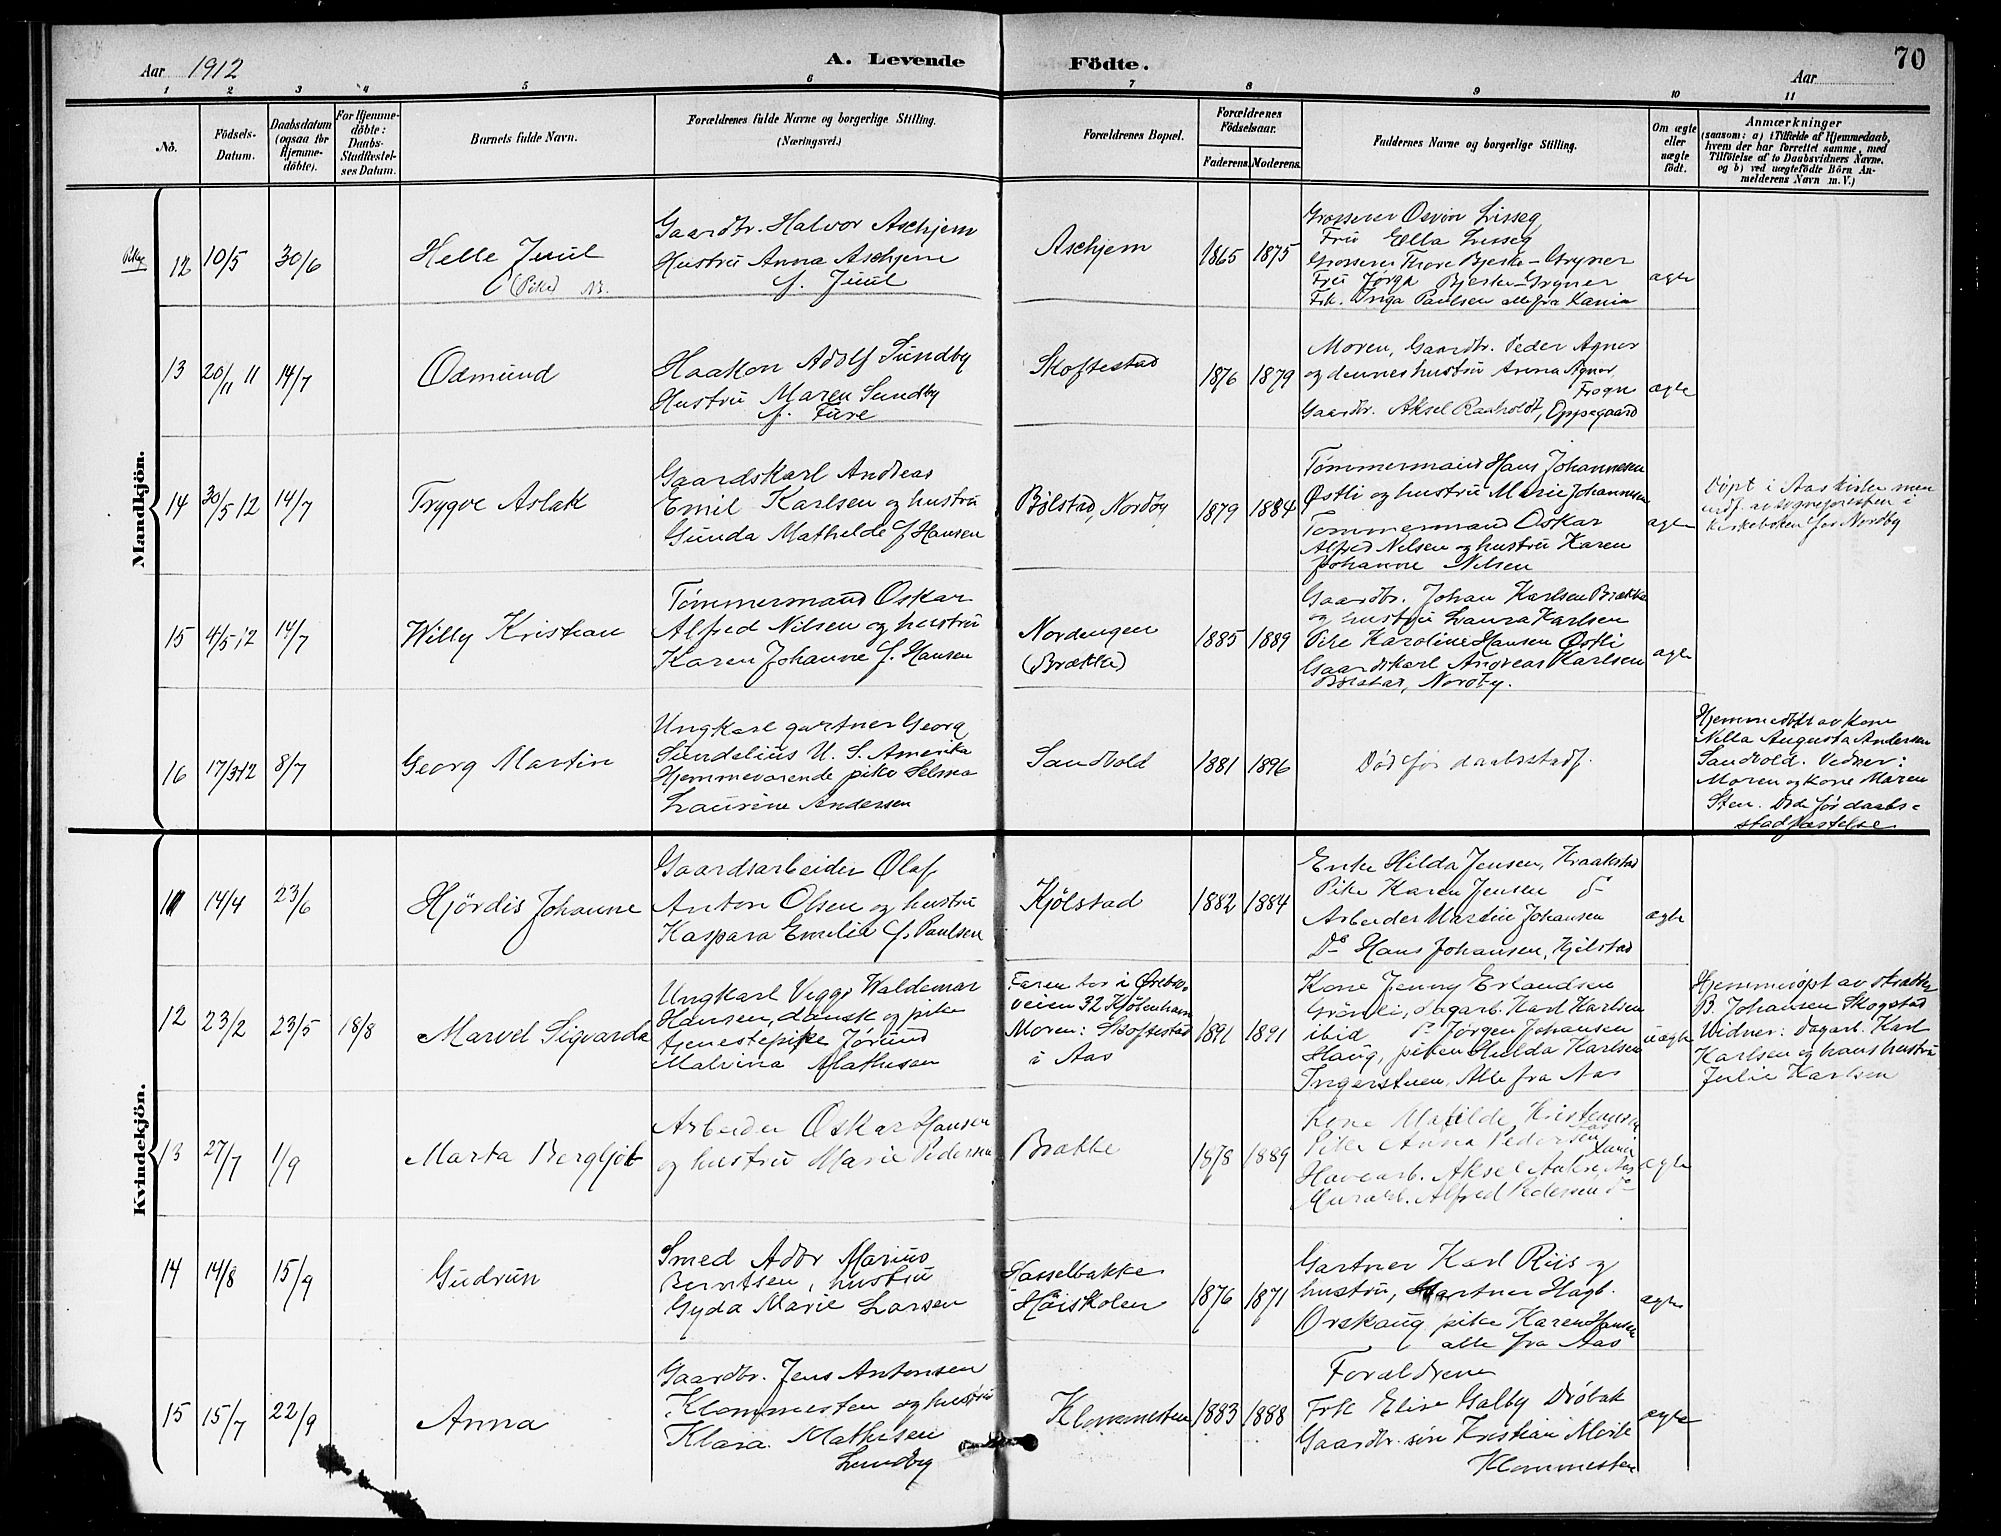 Aar 1912
A. Levende Födte.
70
Aar
1 2 3 4 5 6 7 8 9 10 11
No.
Födsels-Datum.
Daabsdatum (ogsaa for Hjemme-döbte).
For Hjemme-döbte: Daabs-Stadfæstel-ses Datum.
Barnets fulde Navn.
Forældrenes fulde Navne og borgerlige Stilling.
(Næringsvei.)
Forældrenes Bopæl.
Forældrenes Födselsaar.
Faderens. Moderens.
Faddernes Navne og borgerlige Stilling.
Om ægte eller uægte født.
Anmærkninger
(saasom: a) i Tilfælde af Hjemmedaab,
hvem der har forrettet samme, med
Tilföielse af to Daabsvidners Navne.
og b) ved uægtefödte Börn An-
melderens Navn m. V.)
Mandkjön.
Pike
12 10/5 30/6
Helle Juul
(Pike) NB.
Gaardbr. Halvor Aschjem
Hustru Anna Aschjem
f. Juul
Aschjem
1865 1875
Grosserer Osvin Lisseg
Fru Ella Lisseg
Grosserer Thore Bjerke-Gryner
Fru Jørga Bjerke-Gryner
Frk. Inga Paulsen alle fra Kania
ægte
13 20/11 11 14/7
Odmund
Haakon Adolf Sundby
Hustru Maren Sundby
f. Fure
Skoftestad
1876 1879
Moren, Gaardbr. Peder Agnor
og dennes hustru Anna Agnor,
Frogn
Gaardbr. Aksel Raaholdt, Oppegaard
ægte
14 30/5 12 14/7
Trygve Aslak
Gaardskarl Andreas
Emil Karlsen og hustru
Gunda Mathilde f. Hansen
Bølstad, Nordby
1879 1884
Tømmermand Hans Johannesen
Østli og hustru Marie Johannesen
Tømmermand Oskar
Alfred Nilsen og hustru Karen
Johanne Nilsen
ægte
Døpt i Aas kirke men
indf. av sognepresten i
kirkeboken for Nordby
15 4/5 12 14/7
Willy Kristian
Tømmermand Oskar
Alfred Nilsen og hustru
Karen Johanne f. Hansen
Nordengen
(Brække)
1885 1889
Gaardbr. Johan Karlsen Brække
og hustru Laura Karlsen
Pike Karoline Hansen Østli
Gaardskarl Andreas Karlsen
Bølstad, Nordby.
ægte
16 17/3 12 8/7
Georg Martin
Ungkarl gartner Georg
Sundelius U. S. Amerika
Hjemmeværende pike Selma
Laurine Andersen
Sandvold
1881 1896
Død før daabsstadf.
Hjemmedøpt av kone
Nella Augusta Andersen
Sandvold. Vidner:
Moren og kone Maren
Sten. Døde før daabs-
stadfæstelse
Kvindekjön.
11 14/4 23/6
Hjördis Johanne
Gaardsarbeider Olaf
Anton Olsen og hustru
Kaspara Emilie f. Paulsen
Kjølstad
1882 1884
Enke Hilda Jensen, Kraakstad
Pike Karen Jensen do
Arbeider Martin Johansen
Do Hans Johansen, Kjølstad
ægte
12 23/2 23/5 18/8
Marvel Sigvarda
Ungkarl Viggo Waldemar
Hansen, dansk og pike
tjenestepike Jørund
Malvina Mathisen
Faren bor i Ørebro-
veien 32 Kjøbenhavn
Moren: Skoftestad
i Aas
1891 1891
Kone Jenny Erlandsen
Grönli, dagarb. Karl Karlsen
ibid do Jörgen Johansen
Haug, piken Hulda Karlsen
Ingerstuen, Alle fra Aas
uægte
Hjemmedøpt av
B. Johansen Skogstad
Vidner: dagarb. Karl
Karlsen og hans hustru
Julie Karlsen
13 27/7 1/9
Marta Bergljot
Arbeider Oskar Hansen
og hustru Marie Pedersen
Brække
1878 1889
Kone Matilde Kristiansen
Aas
Pike Anna Pedersen
Havearb. Aksel Aas
Murarb. Alfred Pedersen do
ægte
14 14/8 15/9
Gudrun
Smed Adör Marius
Berntsen, hustru
Gyda Marie Larsen
Hasselbakke
Höiskolen
1876 1871
Gartner Karl Riis og
hustru, Gartner Hagb.
Orskaug pike Karen Hansen
alle fra Aas
ægte
15 15/7 22/9
Anna
Gaardbr. Jens Antonsen
Klommesten og hustru
Klara Mathisen
Lundby
Klommesten
1883 1888
Forældrene
Frk Elise Galby Dröbak
Gaardbr. søn Kristian Moile
Klommesten
ægte